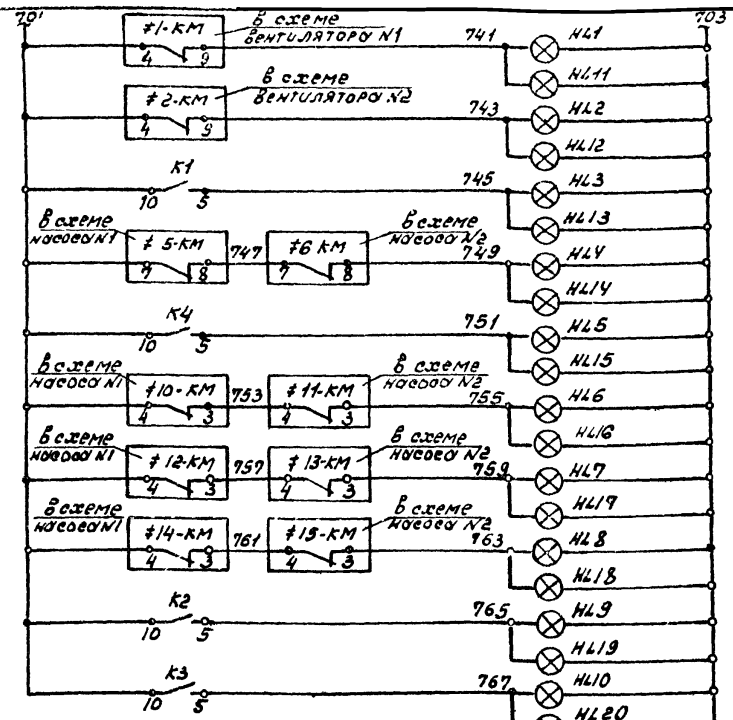 701 703
в схеме
вентилятора N1
≠1-КМ
4 9
741
HL1
HL11
в схеме
вентилятора N2
≠2-КМ
4 9
743
HL2
HL12
К1
10 5
745
HL3
HL13
в схеме
насоса N1
≠5-КМ
7 8
747
≠6 КМ
7 8
в схеме
насоса N2
749
HL4
HL14
К4
10 5
751
HL5
HL15
в схеме
насоса N1
≠10-КМ
4 3
753
≠11-КМ
4 3
в схеме
насоса N2
755
HL6
HL16
в схеме
насоса N1
≠12-КМ
4 3
757
≠13-КМ
4 3
в схеме
насоса N2
759
HL7
HL17
в схеме
насоса N1
≠14-КМ
4 3
761
≠15-КМ
4 3
в схеме
насоса N2
763
HL8
HL18
К2
10 5
765
HL9
HL19
К3
10 5
767
HL10
HL20